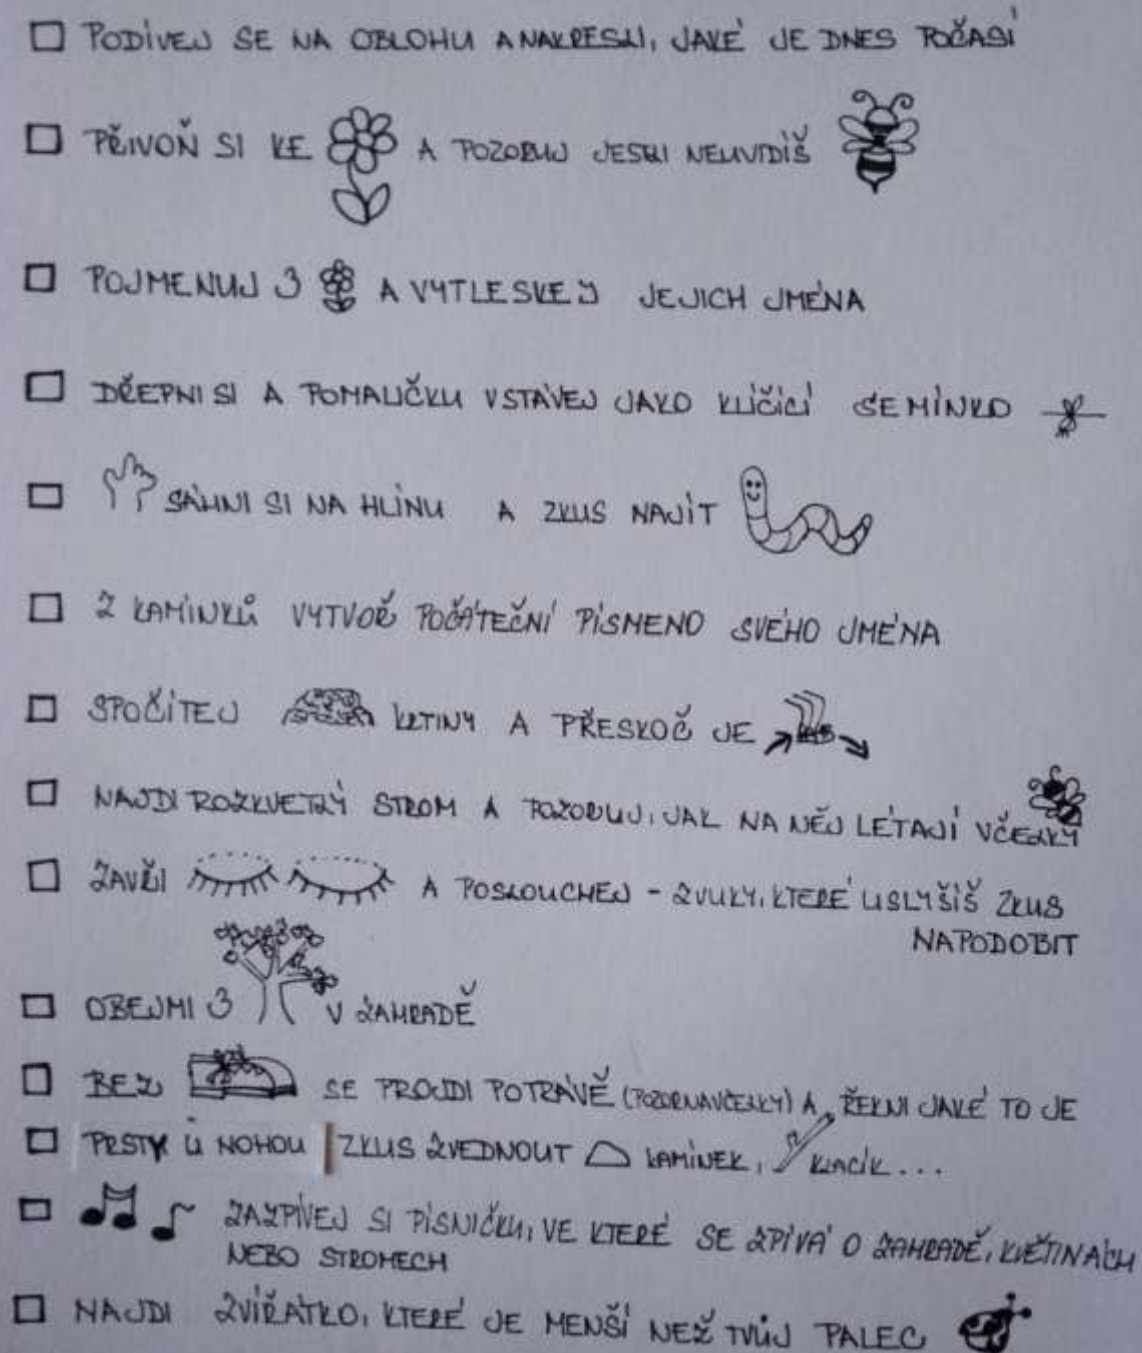 PODÍVEJ SE NA OBLOHU A NAKRESLI, JAKÉ JE DNES POČASÍ
PŘIVOŇ SI KE A POZORUJ JESTLI NEUVIDÍŠ
POJMENUJ 3 A VYTLESKEJ JEJICH JMÉNA
DŘEPNI SI A POMALIČKU VSTÁVEJ JAKO KLÍČÍCÍ SEMÍNKO
SÁHNI SI NA HLÍNU A ZKUS NAJÍT
Z KAMÍNKŮ VYTVOŘ POČÁTEČNÍ PÍSMENO SVÉHO JMÉNA
SPOČÍTEJ KRTINY A PŘESKOČ JE
NAJDI ROZKVETLÝ STROM A POZORUJ, JAK NA NĚJ LÉTAJÍ VČELKY
ZAVŘI A POSLOUCHEJ - ZVUKY, KTERÉ USLYŠÍŠ ZKUS
NAPODOBIT
OBEJMI 3 V ZAHRADĚ
BEZ SE PROJDI PO TRÁVĚ (POZOR NA VČELKY) A ŘEKNI JAKÉ TO JE
PRSTY U NOHOU ZKUS ZVEDNOUT KAMÍNEK, KLACÍK...
ZAZPÍVEJ SI PÍSNIČKU, VE KTERÉ SE ZPÍVÁ O ZAHRADĚ, KVĚTINÁCH
NEBO STROMECH
NAJDI ZVÍŘÁTKO, KTERÉ JE MENŠÍ NEŽ TVŮJ PALEC